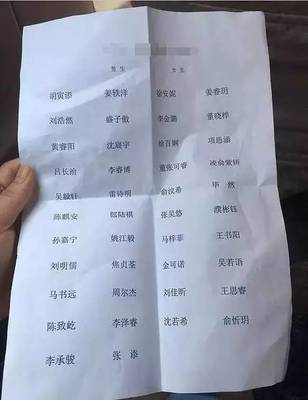 男生 女生
胡寅添 姜轶洋 徐安妮 姜睿玥
刘浩然 盛子傲 李金潞 董晓桦
黄睿阳 沈宸宇 徐百娴 项思涵
吕长治 李睿博 董张可睿 凌俞紫妍
吴毓轩 雷诗明 俞汶希 毕然
陈麒安 郎陆棋 张昊悠 濮彬钰
孙嘉宁 姚江毅 马梓菲 王书阳
刘明儒 焦贞荃 金可诺 吴若语
马书远 周尔杰 刘佳昕 王思睿
陈致屹 李泽睿 沈若希 俞哲玥
李承骏 张添